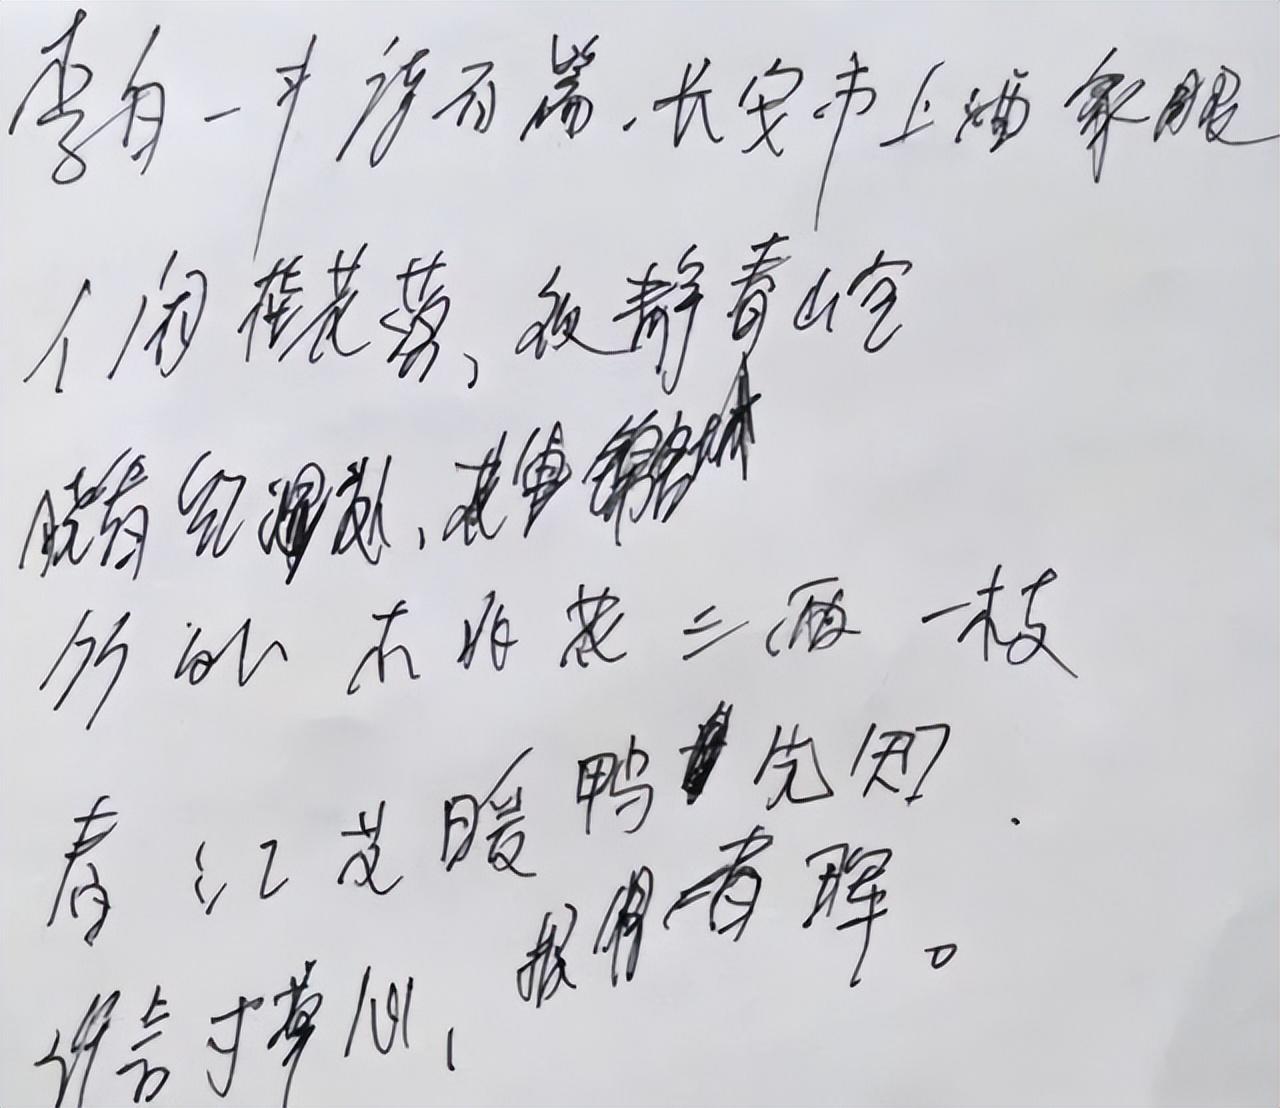 李白一斗诗百篇.长安市上酒家眠
人闲桂花落,夜静春山空
晓看红湿处,花重锦官城
竹外桃花三两枝
春江水暖鸭先知.
谁言寸草心,报得三春晖。